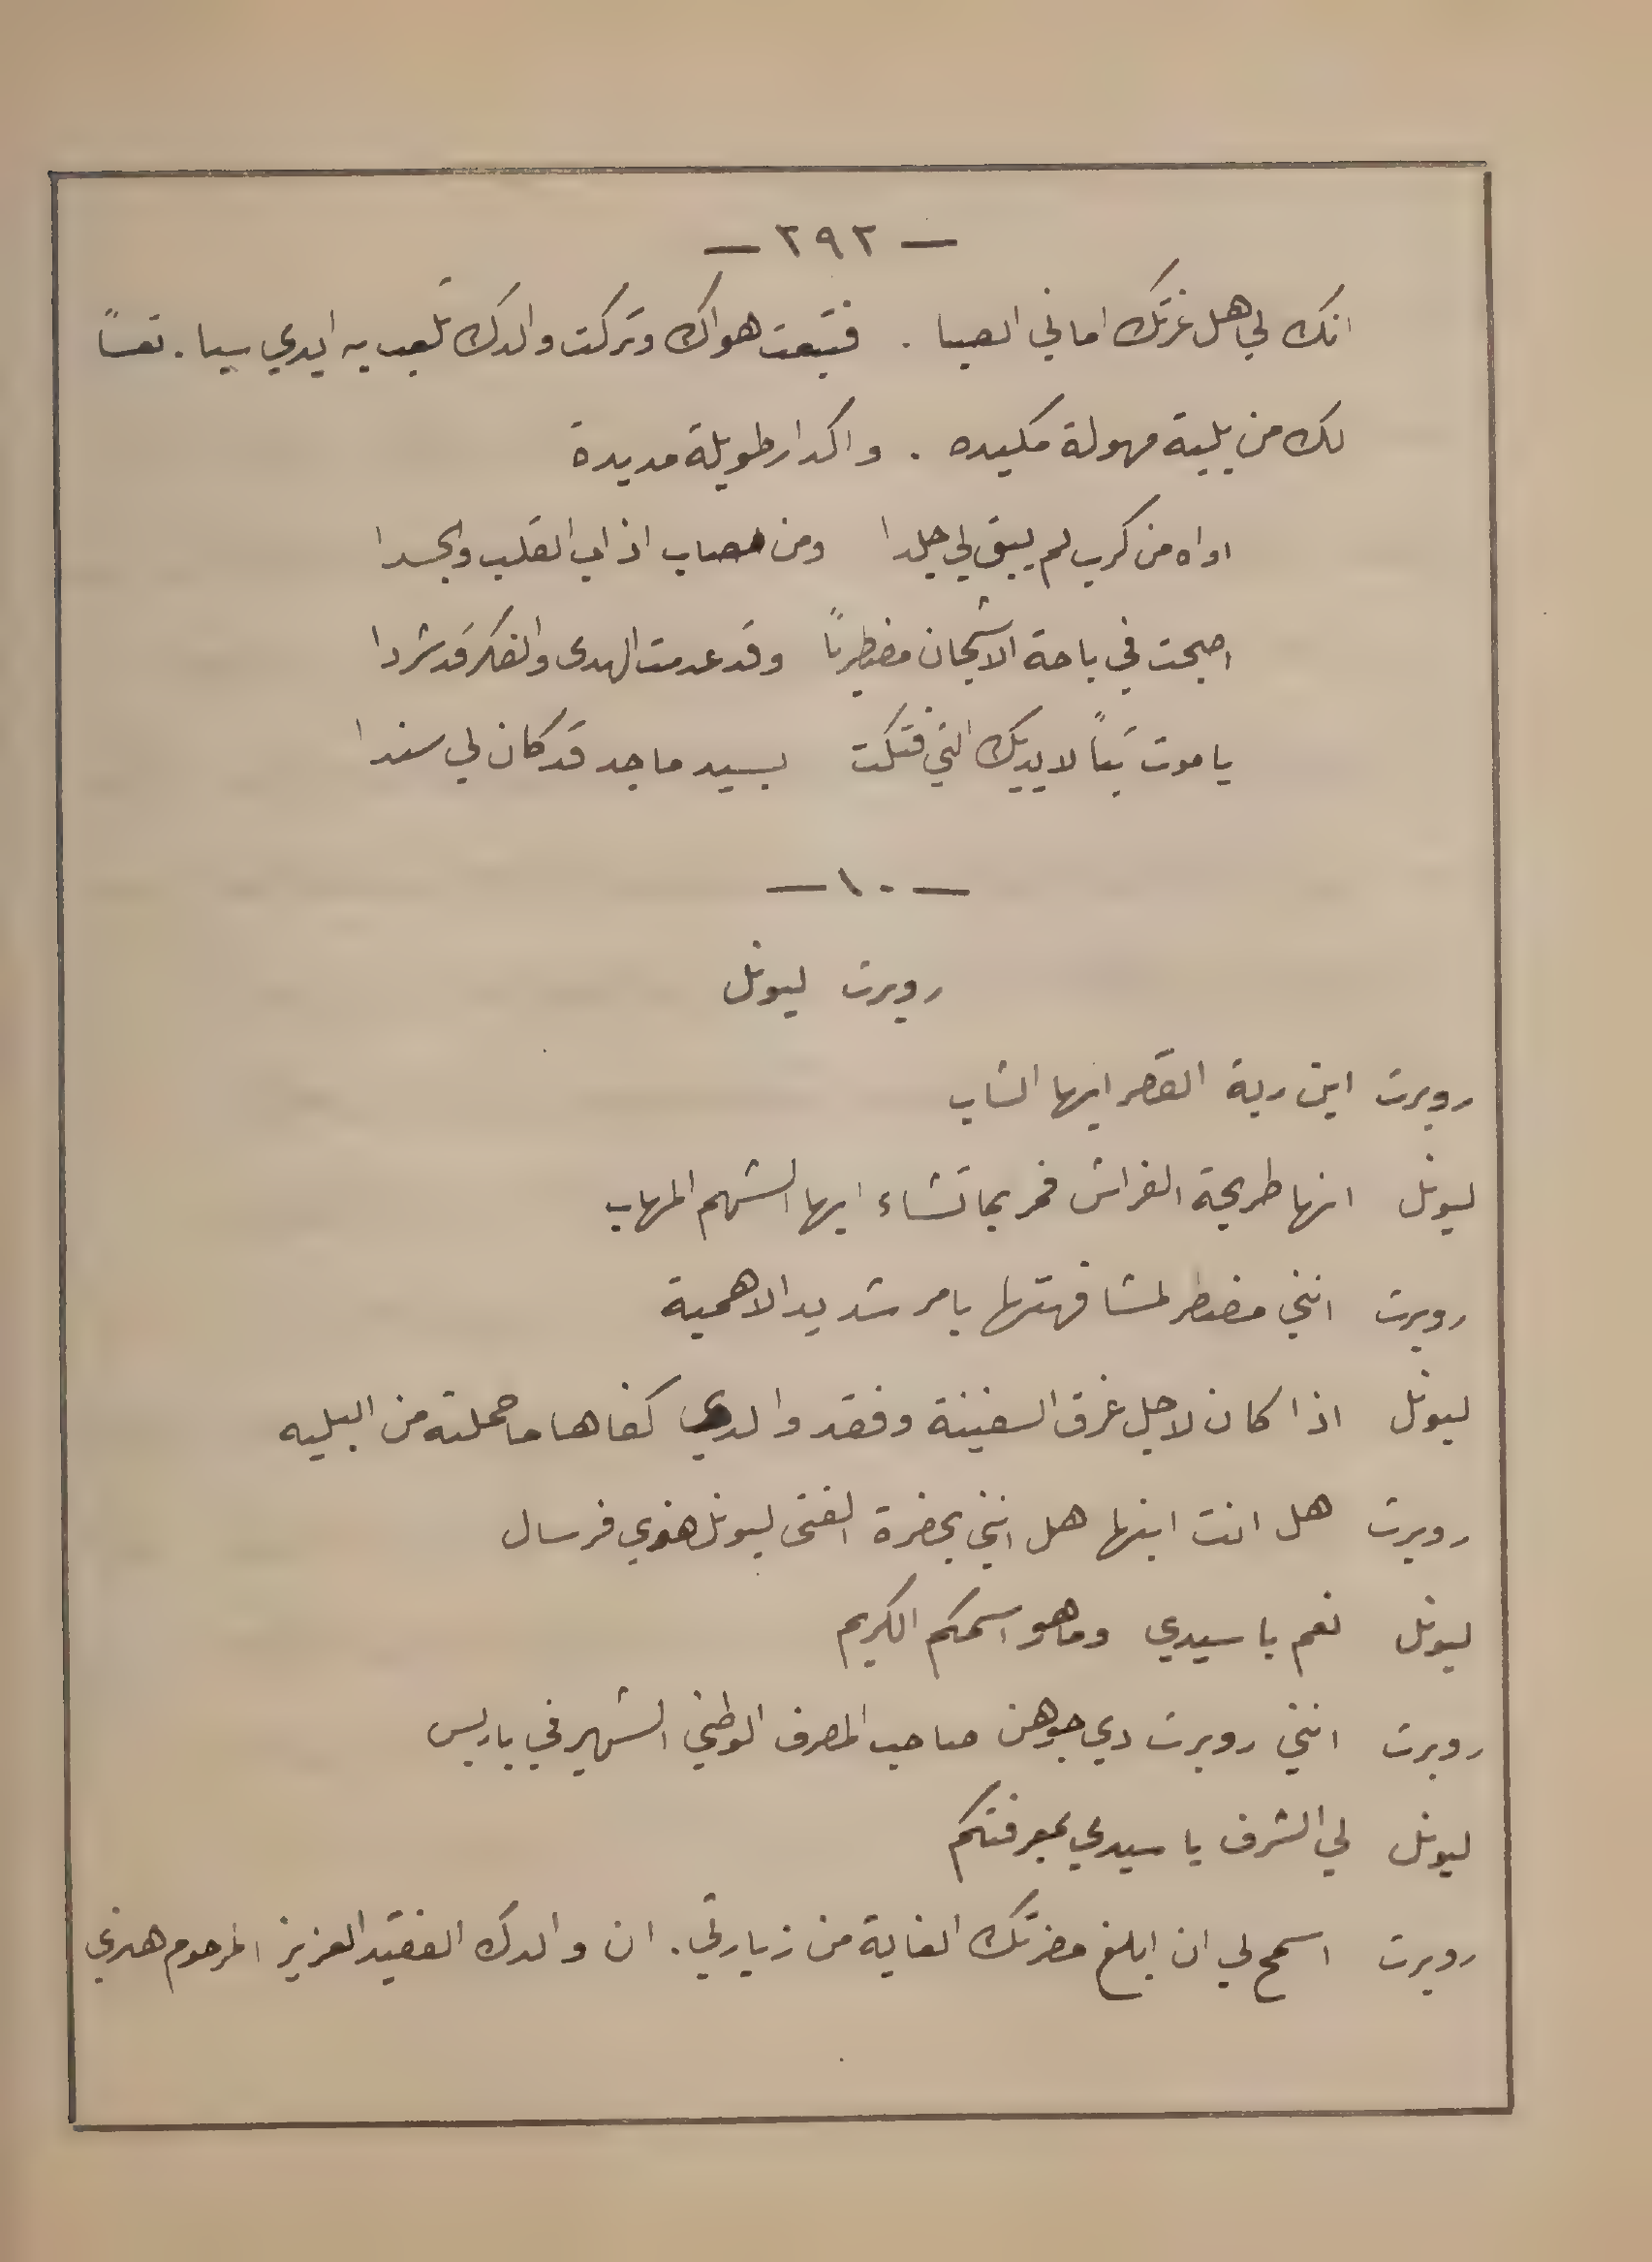 — ٢٩٢ —
انك لي هل غرتك اماني الصبا . فتبعت هواك وتركت والدك تلعب به ايدي سبا . تعساً
لك من بلية مهولة مكيده . واكدار طويلة مديدة
اواه من كرب لم يبق لي جلدا ومن مصاب اذاب القلب والجسدا
اصبحت في باحة الاشجان مضطرباً وقد عدمت الهدى والفكر قد شردا
يا موت تباً لايديك التي فتكت بسيد ماجد قد كان لي سندا
— ١٠ —
روبرت ليونل
روبرت اين ربة القصر ايها الشاب
ليونل انها طريحة الفراش فمر بما تشاء ايها الشهم المهاب
روبرت انني مضطر لمشافهتها بامر شديد الاهمية
ليونل اذا كان لاجل غرق السفينة وفقد والدي كفاها ما حملته من البليه
روبرت هل انت ابنها هل انني بحضرة الفتى ليونل هنري فرسال
ليونل نعم يا سيدي وما هو اسمكم الكريم
روبرت انني روبرت دي جوهن صاحب المصرف الوطني الشهير في باريس
ليونل لي الشرف يا سيدي بمعرفتكم
روبرت اسمح لي ان ابلغ حضرتك الغاية من زيارتي . ان والدك الفقيد العزيز المرحوم هنري